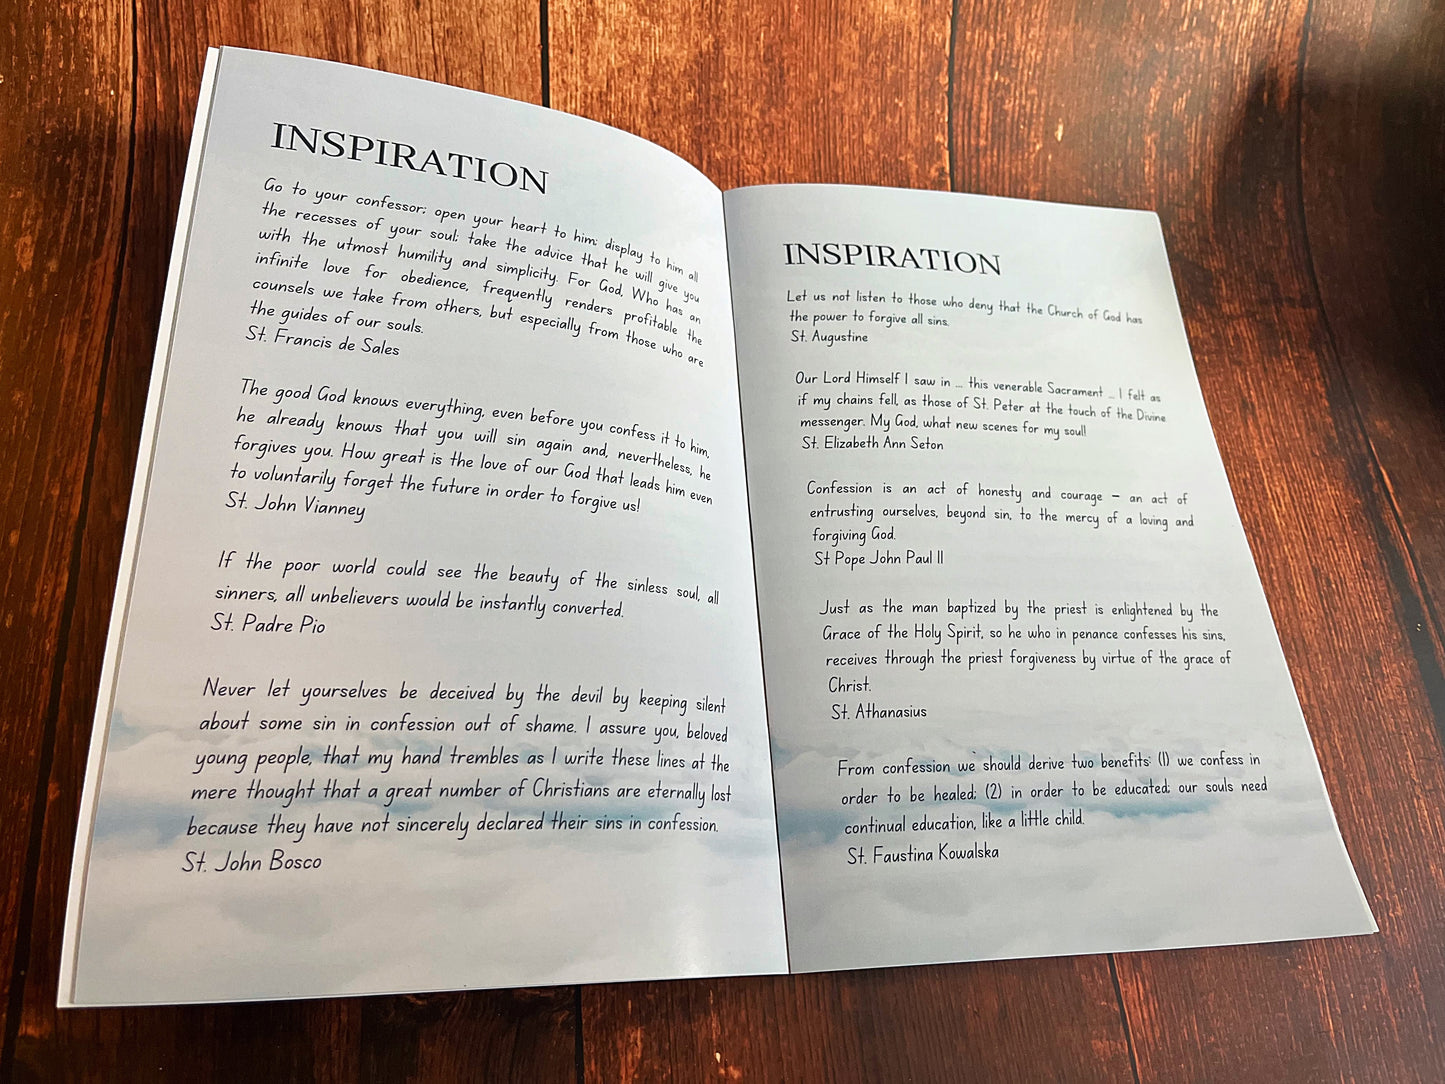 INSPIRATION
Go to your confessor; open your heart to him; display to him all
the recesses of your soul; take the advice that he will give you
with the utmost humility and simplicity. For God, Who has an
infinite love for obedience, frequently renders profitable the
counsels we take from others, but especially from those who are
the guides of our souls.
St. Francis de Sales
The good God knows everything, even before you confess it to him,
he already knows that you will sin again and, nevertheless, he
forgives you. How great is the love of our God that leads him even
to voluntarily forget the future in order to forgive us!
St. John Vianney
If the poor world could see the beauty of the sinless soul, all
sinners, all unbelievers would be instantly converted.
St. Padre Pio
Never let yourselves be deceived by the devil by keeping silent
about some sin in confession out of shame. I assure you, beloved
young people, that my hand trembles as I write these lines at the
mere thought that a great number of Christians are eternally lost
because they have not sincerely declared their sins in confession.
St. John Bosco
INSPIRATION
Let us not listen to those who deny that the Church of God has
the power to forgive all sins.
St. Augustine
Our Lord Himself I saw in ... this venerable Sacrament ... I felt as
if my chains fell, as those of St. Peter at the touch of the Divine
messenger. My God, what new scenes for my soul!
St. Elizabeth Ann Seton
Confession is an act of honesty and courage – an act of
entrusting ourselves, beyond sin, to the mercy of a loving and
forgiving God.
St Pope John Paul II
Just as the man baptized by the priest is enlightened by the
Grace of the Holy Spirit, so he who in penance confesses his sins,
receives through the priest forgiveness by virtue of the grace of
Christ.
St. Athanasius
From confession we` should derive two benefits: (1) we confess in
order to be healed; (2) in order to be educated; our souls need
continual education, like a little child.
St. Faustina Kowalska